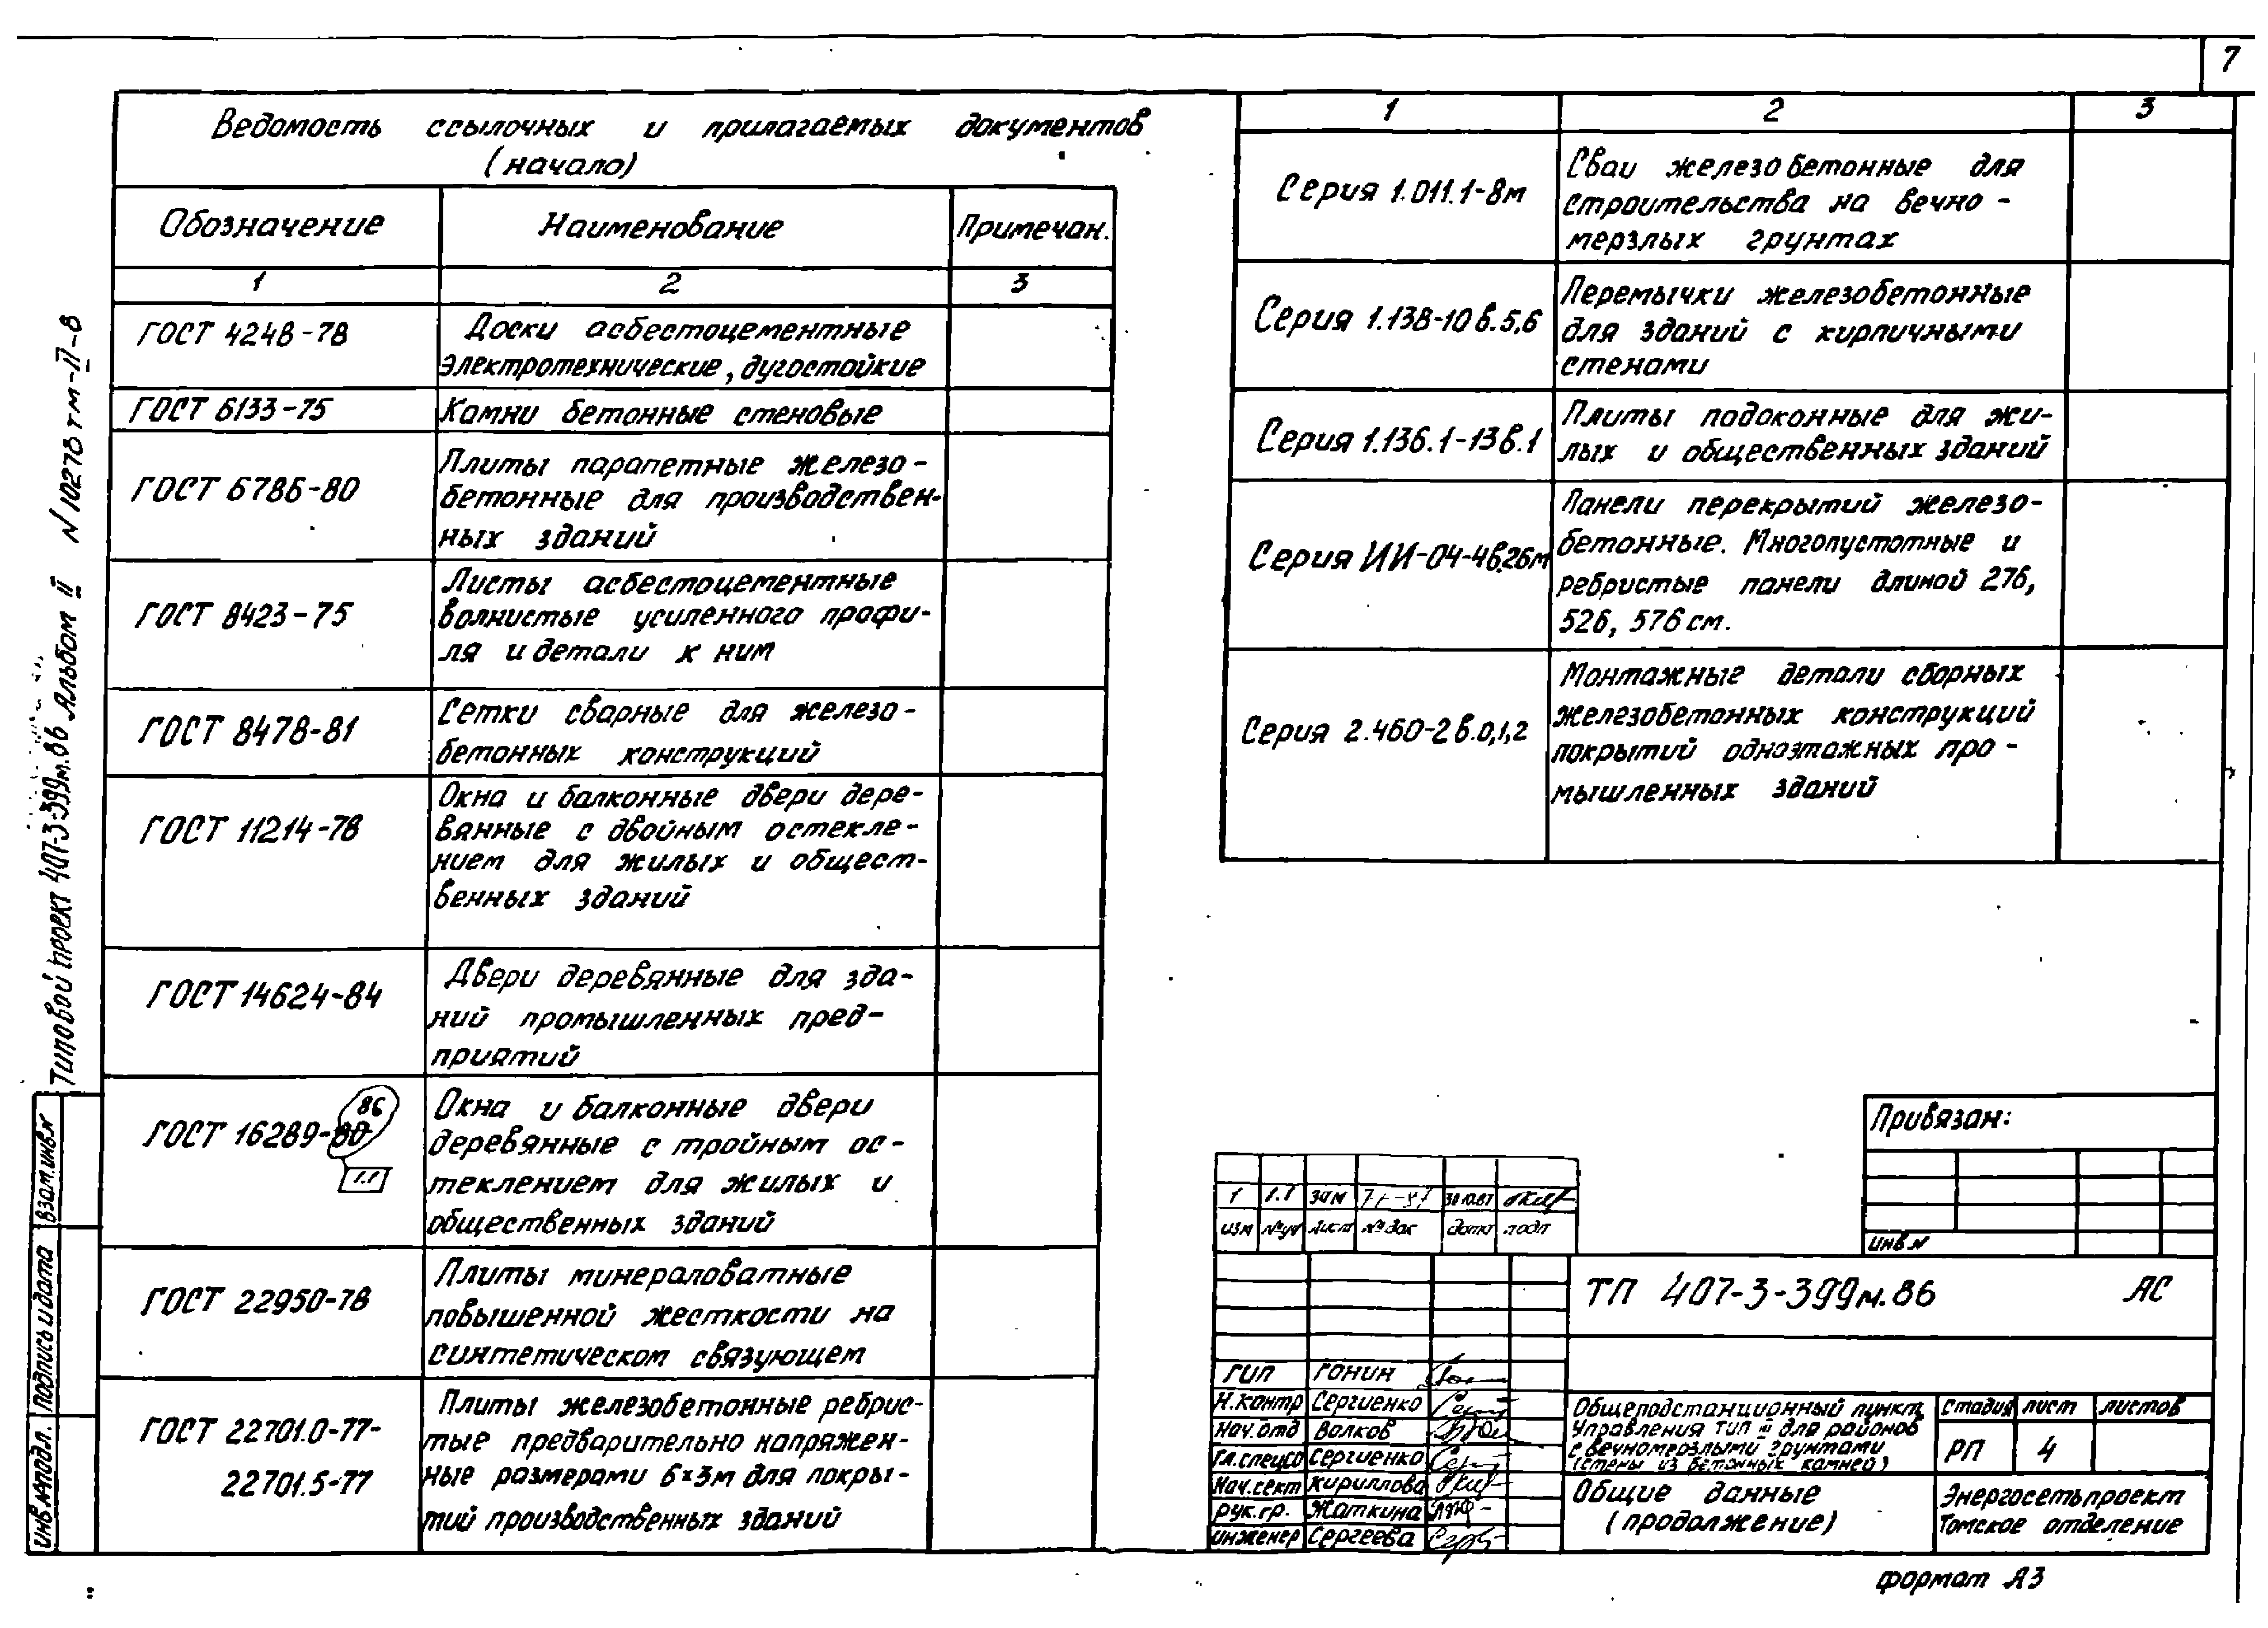 7
Ведомость ссылочных и прилагаемых документов
(начало)
Обозначение Наименование Примечан.
1 2 3
ГОСТ 4248-78 Доски асбестоцементные
электротехнические, дугостойкие
ГОСТ 6133-75 Камни бетонные стеновые
ГОСТ 6786-80 Плиты парапетные железо-
бетонные для производствен-
ных зданий
ГОСТ 8423-75 Листы асбестоцементные
волнистые усиленного профи-
ля и детали к ним
ГОСТ 8478-81 Сетки сварные для железо-
бетонных конструкций
ГОСТ 11214-78 Окна и балконные двери дере-
вянные с двойным остекле-
нием для жилых и общест-
венных зданий
ГОСТ 14624-84 Двери деревянные для зда-
ний промышленных пред-
приятий
86
ГОСТ 16289-80 Окна и балконные двери
деревянные с тройным ос-
1.1 теклением для жилых и
общественных зданий
ГОСТ 22950-78 Плиты минераловатные
повышенной жесткости на
синтетическом связующем
ГОСТ 22701.0-77- Плиты железобетонные ребрис-
тые предварительно напряжен-
22701.5-77 ные размерами 6×3м для покры-
тий производственных зданий
1 2 3
Серия 1.011.1-8м Сваи железобетонные для
строительства на вечно-
мерзлых грунтах
Серия 1.138-10 в.5,6 Перемычки железобетонные
для зданий с кирпичными
стенами
Серия 1.136.1-13в.1 Плиты подоконные для жи-
лых и общественных зданий
Серия ИИ-04-4в.26м Панели перекрытий железо-
бетонные. Многопустотные и
ребристые панели длиной 276,
526, 576 см.
Серия 2.460-2 в.0,1,2 Монтажные детали сборных
железобетонных конструкций
покрытий одноэтажных про-
мышленных зданий
Типовой проект 407-3-399м.86 Альбом II N 10278тм-II-8
Взам.инв.N
Подпись и дата
Инв.Nподл.
Привязан:
инв.N
1 1.1 зам 30.10.87
изм №уч лист №док дата подп
ТП 407-3-399м.86 АС
ГИП Гонин
Н.контр Сергиенко
Нач.отд Волков
Гл.спецсо Сергиенко
Нач.сект Кириллова
Рук.гр. Жаткина
Инженер Сергеева
Общеподстанционный пункт
управления тип III для районов
с вечномерзлыми грунтами
(стены из бетонных камней)
Стадия лист листов
РП 4
Общие данные
(продолжение)
Энергосетьпроект
Томское отделение
формат А3